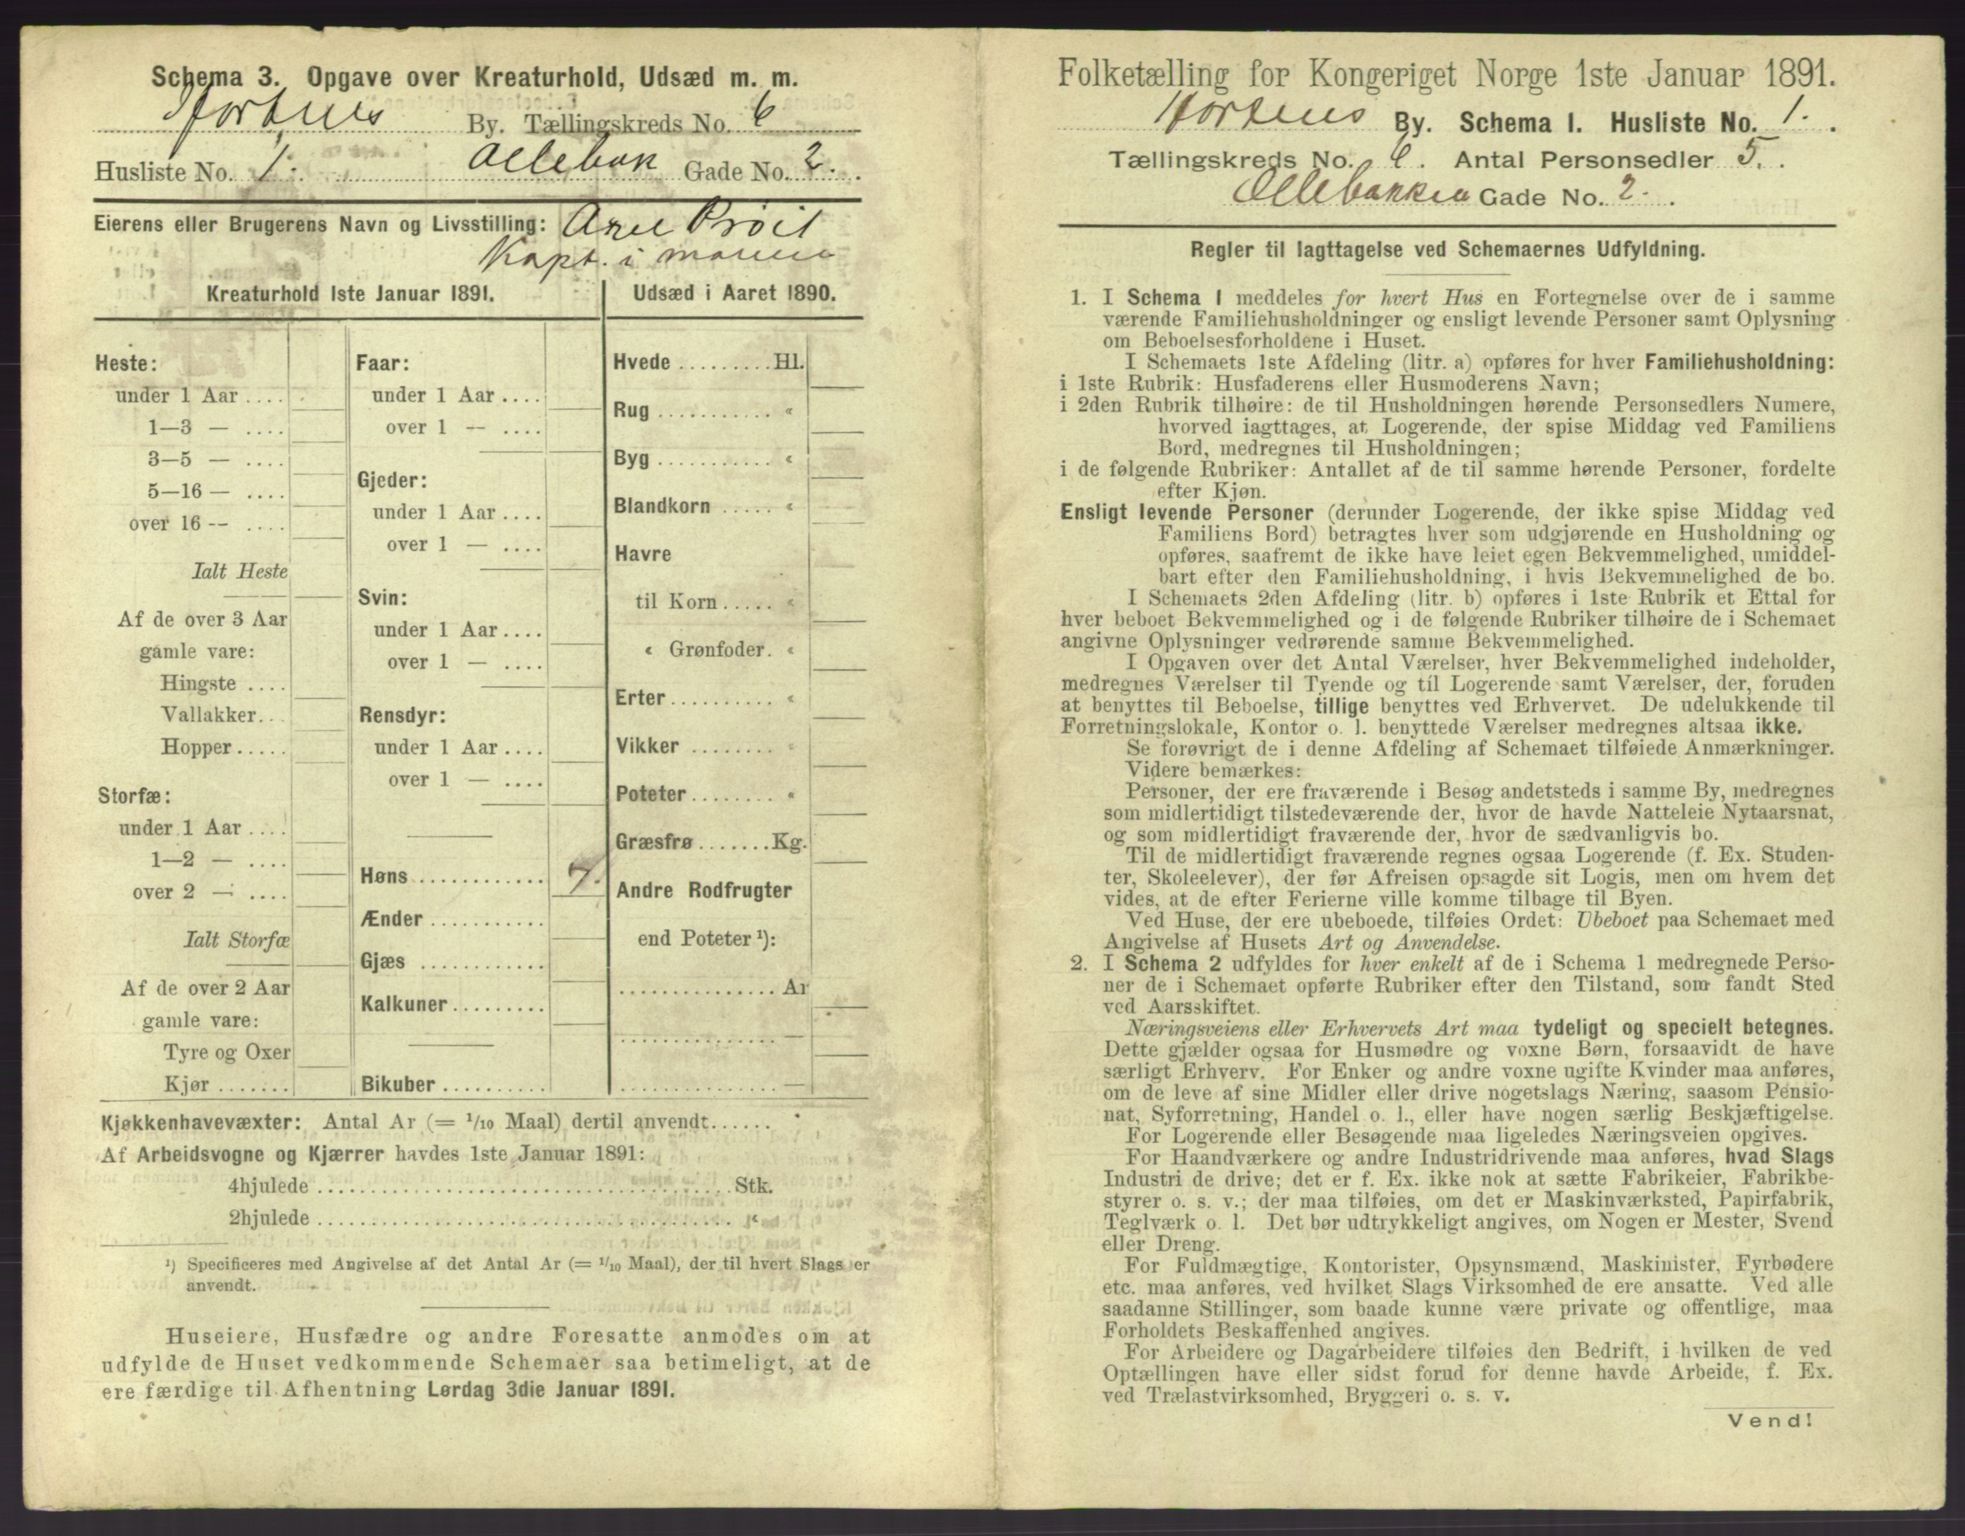 Schema 3. Opgave over Kreaturhold, Udsæd m. m.
Hortens By. Tællingskreds No. 6
Husliste No. 1. Ollebak Gade No. 2.
Eierens eller Brugerens Navn og Livsstilling: Arne Prøit
Kapt. i marinen
Kreaturhold 1ste Januar 1891.
Heste:
under 1 Aar ....
1—3 — ....
3—5 — ....
5—16 — ....
over 16 -- ....
Ialt Heste
Af de over 3 Aar
gamle vare:
Hingste ....
Vallakker...
Hopper.....
Storfæ:
under 1 Aar ....
1—2 — ....
over 2 — ....
Ialt Storfæ
Af de over 2 Aar
gamle vare:
Tyre og Oxer
Kjør .......
Faar:
under 1 Aar ....
over 1 — ....
Gjeder:
under 1 Aar ....
over 1 — ....
Svin:
under 1 Aar ....
over 1 — ....
Rensdyr:
under 1 Aar ....
over 1 — ....
Høns ............ 7.
Ænder ...........
Gjæs ............
Kalkuner.........
Bikuber ..........
Udsæd i Aaret 1890.
Hvede .........Hl.
Rug ........... «
Byg ........... «
Blandkorn ..... «
Havre
til Korn ..... «
« Grønfoder. «
Erter.......... «
Vikker ........ «
Poteter........ «
Græsfrø .......Kg.
Andre Rodfrugter
end Poteter ¹):
............... Ar
............... —
............... —
Kjøkkenhavevæxter: Antal Ar (= 1/10 Maal) dertil anvendt......
Af Arbeidsvogne og Kjærrer havdes 1ste Januar 1891:
4hjulede ...................................... Stk.
2hjulede ...................................... «
¹) Specificeres med Angivelse af det Antal Ar (= 1/10 Maal), der til hvert Slags er
anvendt.
Huseiere, Husfædre og andre Foresatte anmodes om at
udfylde de Huset vedkommende Schemaer saa betimeligt, at de
ere færdige til Afhentning Lørdag 3die Januar 1891.
Folketælling for Kongeriget Norge 1ste Januar 1891.
Hortens By. Schema I. Husliste No. 1.
Tællingskreds No. 6. Antal Personsedler 5.
Ollebakken Gade No. 2.
Regler til Iagttagelse ved Schemaernes Udfyldning.
1. I Schema I meddeles for hvert Hus en Fortegnelse over de i samme
værende Familiehusholdninger og ensligt levende Personer samt Oplysning
om Beboelsesforholdene i Huset.
I Schemaets 1ste Afdeling (litr. a) opføres for hver Familiehusholdning:
i 1ste Rubrik: Husfaderens eller Husmoderens Navn;
i 2den Rubrik tilhøire: de til Husholdningen hørende Personsedlers Numere,
hvorved iagttages, at Logerende, der spise Middag ved Familiens
Bord, medregnes til Husholdningen;
i de følgende Rubriker: Antallet af de til samme hørende Personer, fordelte
efter Kjøn.
Ensligt levende Personer (derunder Logerende, der ikke spise Middag ved
Familiens Bord) betragtes hver som udgjørende en Husholdning og
opføres, saafremt de ikke have leiet egen Bekvemmelighed, umiddel-
bart efter den Familiehusholdning, i hvis Bekvemmelighed de bo.
I Schemaets 2den Afdeling (litr. b) opføres i 1ste Rubrik et Ettal for
hver beboet Bekvemmelighed og i de følgende Rubriker tilhøire de i Schemaet
angivne Oplysninger vedrørende samme Bekvemmelighed.
I Opgaven over det Antal Værelser, hver Bekvemmelighed indeholder,
medregnes Værelser til Tyende og til Logerende samt Værelser, der, foruden
at benyttes til Beboelse, tillige benyttes ved Erhvervet. De udelukkende til
Forretningslokale, Kontor o. l. benyttede Værelser medregnes altsaa ikke.
Se forøvrigt de i denne Afdeling af Schemaet tilføiede Anmærkninger.
Videre bemærkes:
Personer, der ere fraværende i Besøg andetsteds i samme By, medregnes
som midlertidigt tilstedeværende der, hvor de havde Natteleie Nytaarsnat,
og som midlertidigt fraværende der, hvor de sædvanligvis bo.
Til de midlertidigt fraværende regnes ogsaa Logerende (f. Ex. Studen-
ter, Skoleelever), der før Afreisen opsagde sit Logis, men om hvem det
vides, at de efter Ferierne ville komme tilbage til Byen.
Ved Huse, der ere ubeboede, tilføies Ordet: Ubeboet paa Schemaet med
Angivelse af Husets Art og Anvendelse.
2. I Schema 2 udfyldes for hver enkelt af de i Schema 1 medregnede Perso-
ner de i Schemaet opførte Rubriker efter den Tilstand, som fandt Sted
ved Aarsskiftet.
Næringsveiens eller Erhvervets Art maa tydeligt og specielt betegnes.
Dette gjælder ogsaa for Husmødre og voxne Børn, forsaavidt de have
særligt Erhverv. For Enker og andre voxne ugifte Kvinder maa anføres,
om de leve af sine Midler eller drive nogetslags Næring, saasom Pensio-
nat, Syforretning, Handel o. l., eller have nogen særlig Beskjæftigelse.
For Logerende eller Besøgende maa ligeledes Næringsveien opgives.
For Haandværkere og andre Industridrivende maa anføres, hvad Slags
Industri de drive; det er f. Ex. ikke nok at sætte Fabrikeier, Fabrikbe-
styrer o. s. v.; der maa tilføies, om det er Maskinværksted, Papirfabrik,
Teglværk o. l. Det bør udtrykkeligt angives, om Nogen er Mester, Svend
eller Dreng.
For Fuldmægtige, Kontorister, Opsynsmænd, Maskinister, Fyrbødere
etc. maa anføres, ved hvilket Slags Virksomhed de ere ansatte. Ved alle
saadanne Stillinger, som baade kunne være private og offentlige, maa
Forholdets Beskaffenhed angives.
For Arbeidere og Dagarbeidere tilføies den Bedrift, i hvilken de ved
Optællingen have eller sidst forud for denne havde Arbeide, f. Ex.
ved Trælastvirksomhed, Bryggeri o. s. v.
Vend!